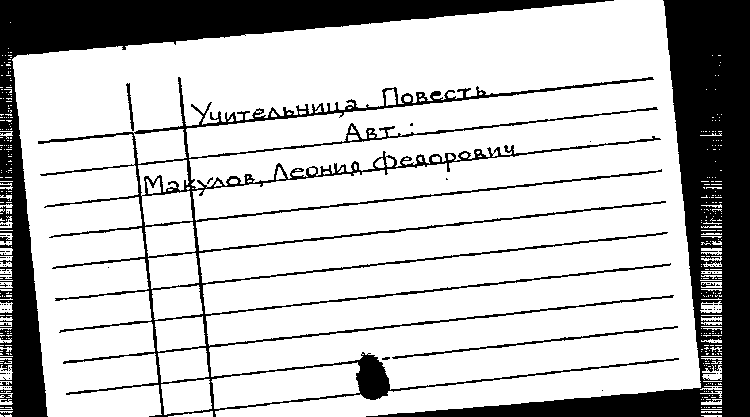 Учительница. Повесть.
Авт.:
Макулов, Леонид Федорович